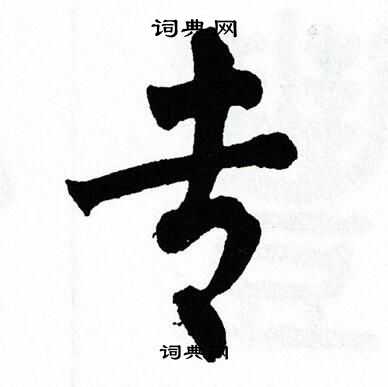 词典网
专
词典网